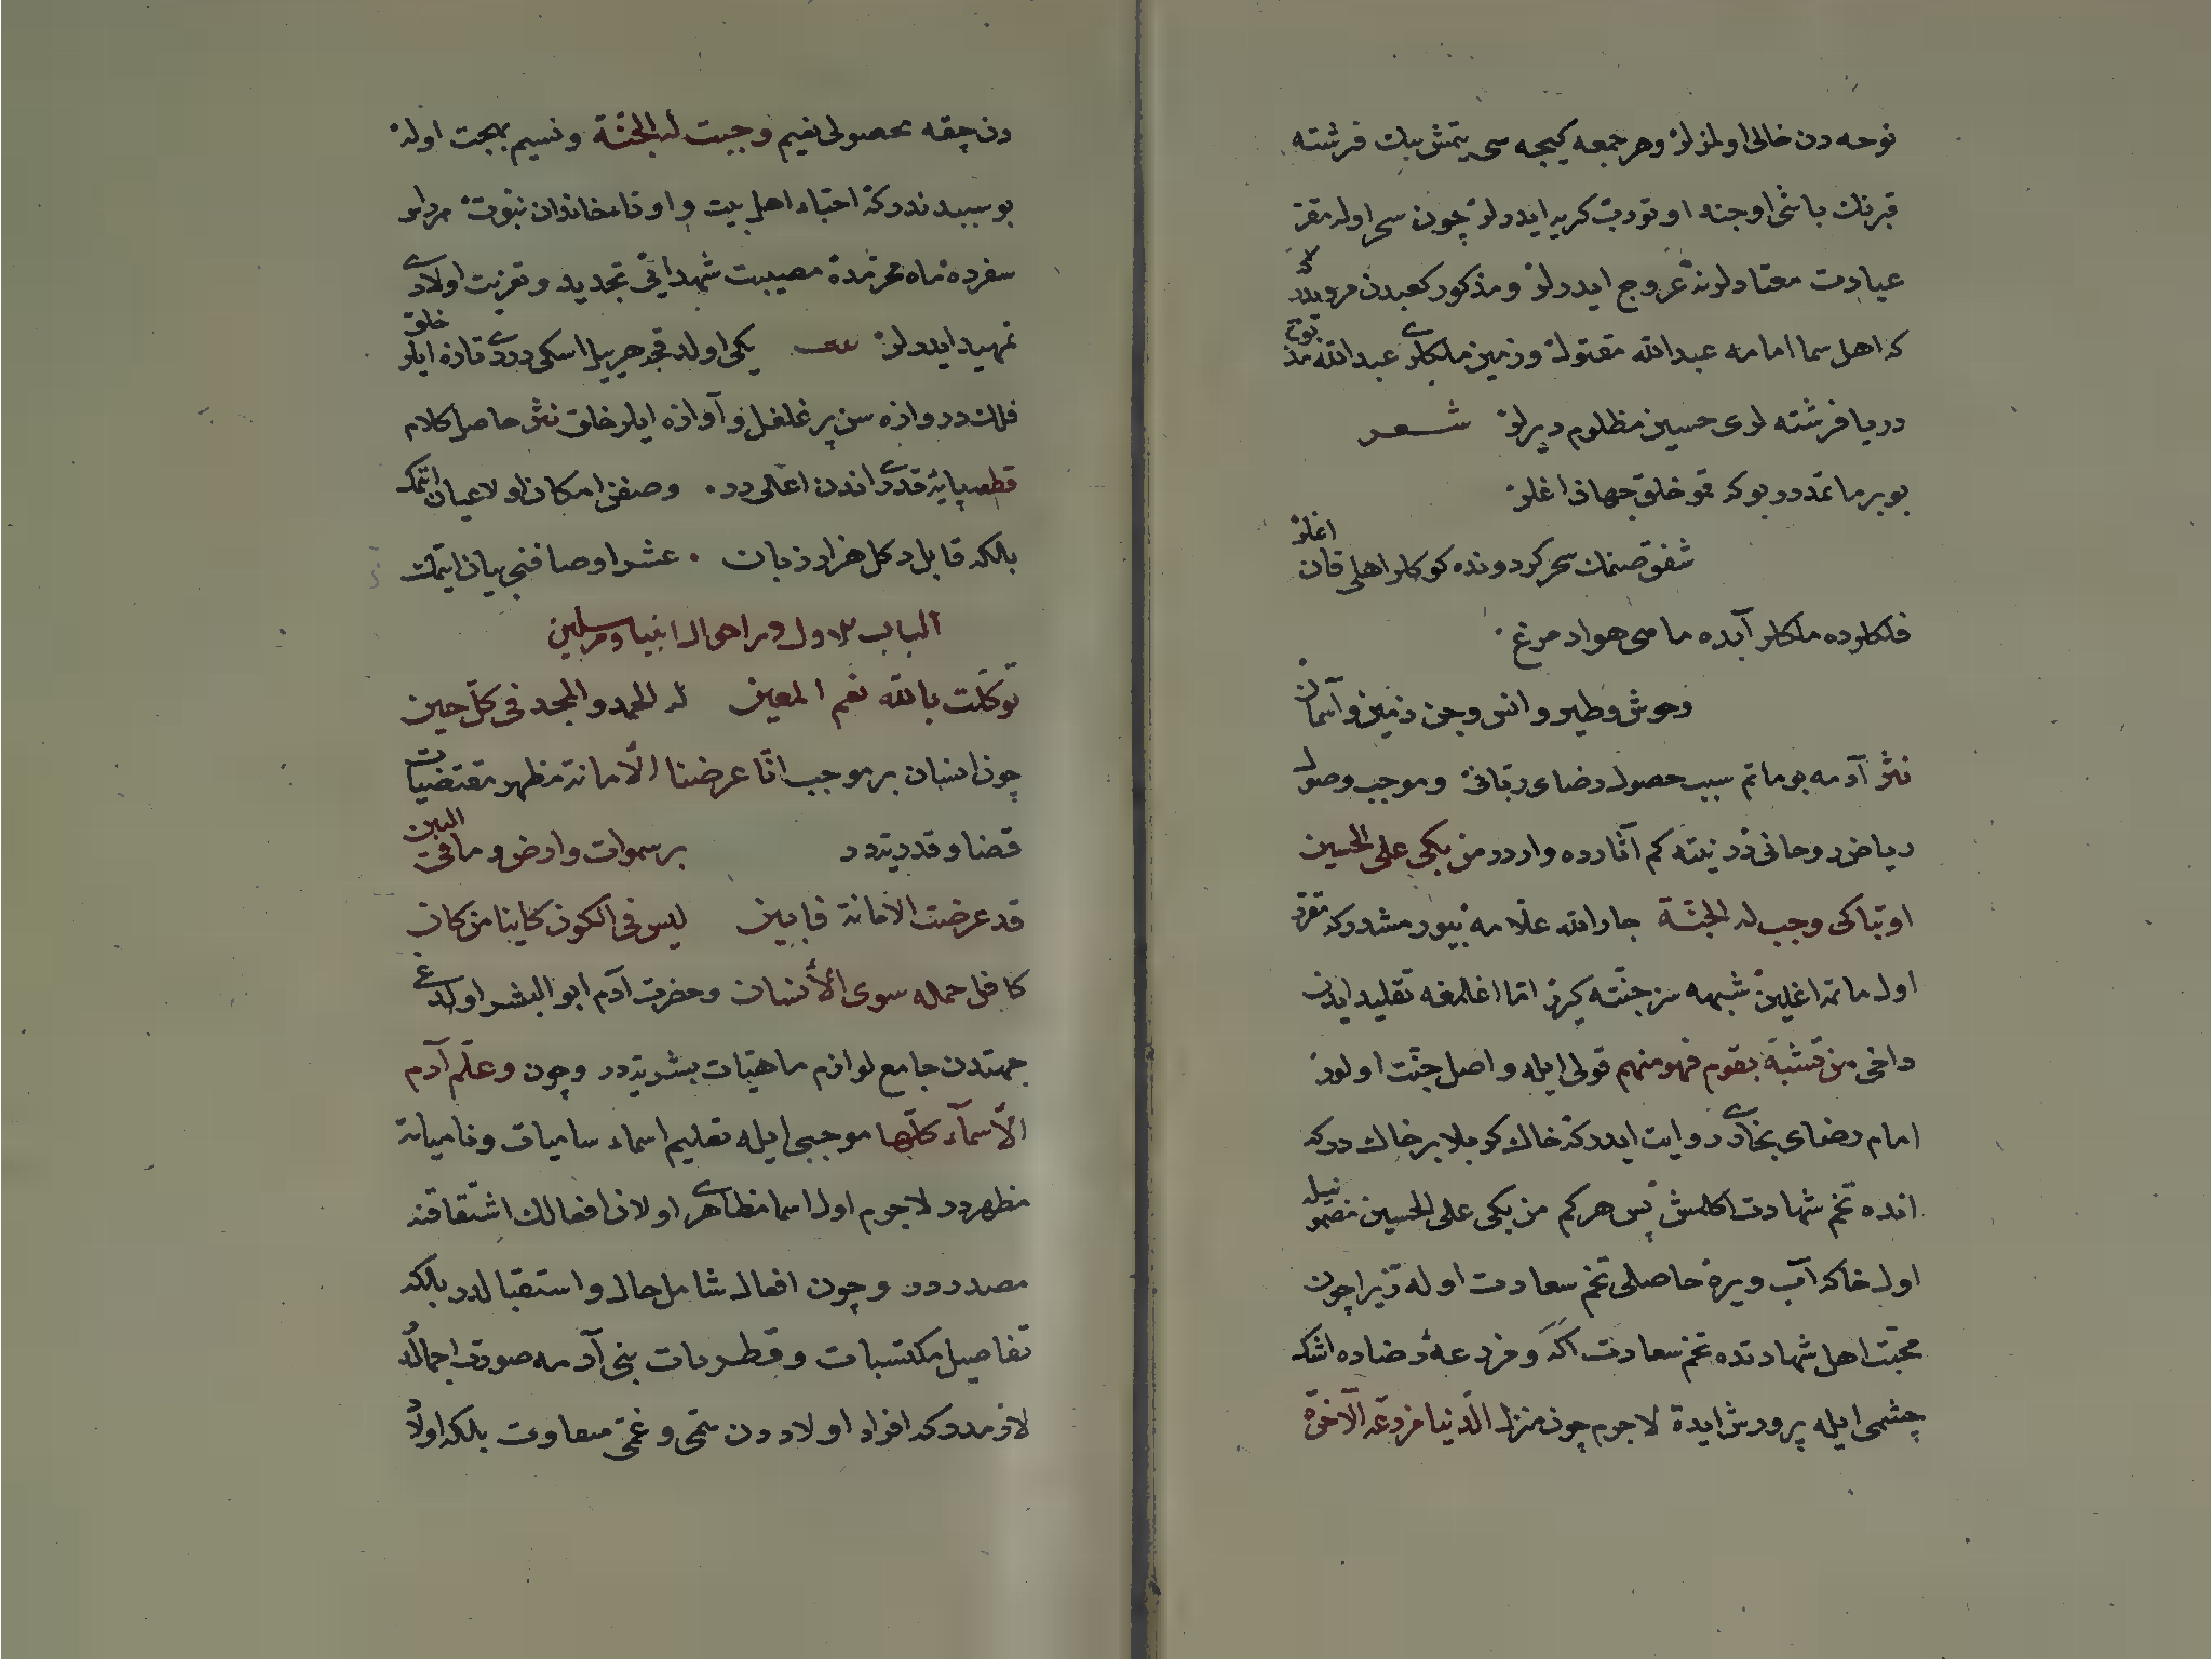 نوحه دن خالی اولمزلر وهر جمعه کیجه سی یتمش بیك فرشته
قبرنك باشی اوجنه اوتورب کریه ایدرلر چون سحر اوله مقر
عبادت معتادلرنه عروج ایدرلر ومذکور کعبدن مرویدر
که اهل سما امامه عبدالله مقتول وزمین ملکلری عبدالله مذبوح
دریا فرشته لری حسین مظلوم دیرلر شعر
بو بر ماتمدر بو که قمو خلق جهان اغلر
شفق صنمك سحر کردونده کوکلر اهلی قان اغلر
فلکلرده ملکلر آبده ماهی هواده مرغ
وحوش وطیر وانس وجن زمین وآسمان
نثر آدمه بو ماتم سبب حصول رضای ربانی وموجب وصول
ریاض روحانی در نیته کم آثارده وارددر من بکی علی الحسین
اوتباکی وجب له الجنة جارالله علامه بیورمشدر که مقرر
اول ماتمه اغلین شبهه سز جنته کیرر اما اغلمغه تقلید ایدن
داخی من تشبه بقوم فهو منهم قولی ایله واصل جنت اولور
امام رضای بخاری روایت ایدر که خاك کربلا بر خاك درکه
انده تخم شهادت اکلمش پس هر کم من بکی علی الحسین مضمونیله
اول خاکه آب ویره حاصلی تخم سعادت اوله زیرا چون
محبت اهل شهادتده تخم سعادت اکه ومزرعهٔ رضاده اشك
چشمی ایله پرورش ایده لاجرم چون منزل الدنیا مزرعة الآخرة
دن چقه محصولی نعیم وجبت له الجنة ونسیم بهجت اولر
بو سببدندر که احباء اهل بیت و اوداء خاندان نبوت هر دلر
سفرده ماه محرمده مصیبت شهدایی تجدید وتعزیت اولادی
تمهید ایدرلر یکی اولدقجه هر ییل اسکی دردی تازه ایلر خلق
فلك دروازه سن پر غلغل وآوازه ایلر خلق نثر حاصل کلام
قطعه پایهٔ قدری اندن اعلی در وصفن امکان اوله عیان اتمك
بلکه قابل دکل هزار زبان عشر اوصافنی بیان ایتمك
الباب الاول در احوال انبیا ومرسلین
توکلت بالله نعم المعین له الحمد والمجد فی کل حین
چون انسان بر موجب انا عرضنا الأمانة مظهر مقتضیات
قضا وقدریدر بر سموات وارض وما فی البین
قد عرضت الأمانة فابین لیس فی الکون کاینا من کان
کافل حمله سوی الأنسان وحضرت آدم ابو البشر اولدغی
جهتدن جامع لوازم ماهیات بشریتدر وچون وعلم آدم
الأسمآء کلها موجبی ایله تعلیم اسماء سامیات ونامیاته
مظهردر لاجرم اول اسما مظاهری اولان افعالك اشتقاقنه
مصدردر وچون افعال شامل حال واستقبالدر بلکه
تفاصیل مکتسبات و فطریات بنی آدمه صورت اجمالی
لازمدر که افراد اولاددن سمی وغمی سعاوت بلکه اولاد